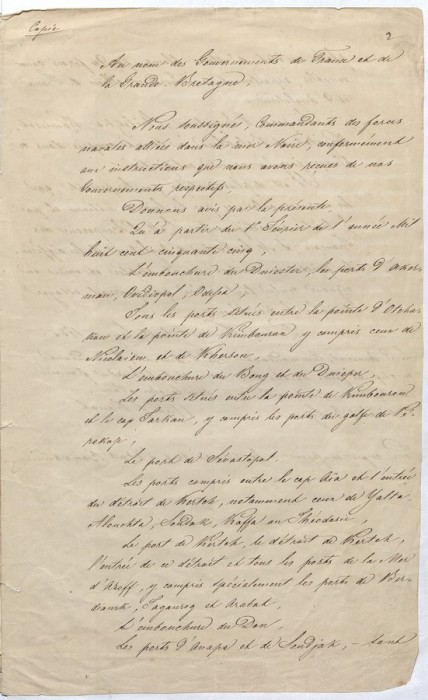 Copie
2
Au nom des Gouvernements de France et de
la Grande Bretagne,
Nous soussignés, Commandants des forces
navales alliées dans la mer Noire, conformément
aux instructions que nous avons reçues de nos
Gouvernements respectifs,
Donnons avis par la présente
Qu'à partir du 1r Février de l'année Mil
huit cent cinquante cinq,
L'embouchure du Dniester, les ports d'Aker-
man, Ovidiopol, Odessa,
Tous les ports situés entre la pointe d'Otcha-
kow et la pointe de Kinbouron, y compris ceux de
Nicolaiew et de Kherson,
L'embouchure du Boug et du Dnieper,
Les ports situés entre la pointe de Kinbouron
et le cap Tarkan, y compris les ports du golfe de Pé-
rékop,
Le port de Sévastopol.
Les ports compris entre le cap Aïa et l'entrée
du détroit de Kertch, notamment ceux de Yalta,
Alouchta, Soudak, Kaffa ou Théodosie,
Le port de Kertch, le détroit de Kertch,
l'entrée de ce détroit et tous les ports de la Mer
d'Azoff, y compris spécialement les ports de Ber-
diansk, Taganrog et Arabat,
L'embouchure du Don,
Les ports d'Anapa et de Soudjak, – tant